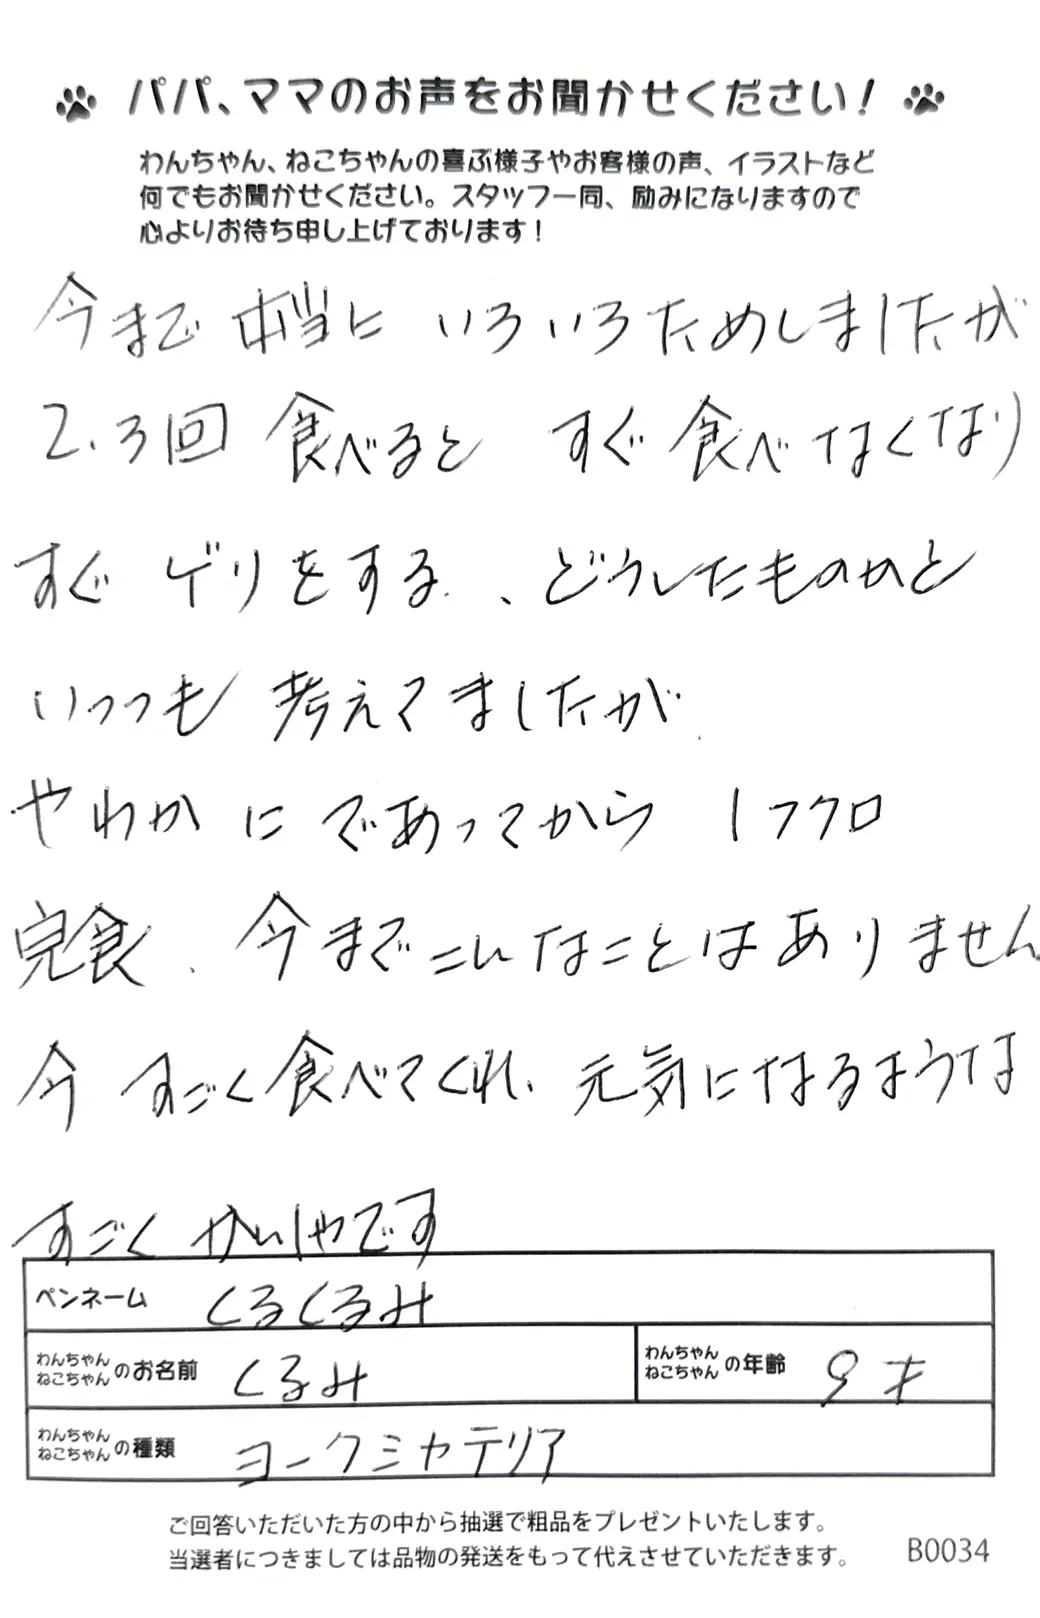 パパ、ママのお声をお聞かせください!
わんちゃん、ねこちゃんの喜ぶ様子やお客様の声、イラストなど
何でもお聞かせください。スタッフ一同、励みになりますので
心よりお待ち申し上げております!
今まで 本当に いろいろためしましたが
2.3回 食べると すぐ食べなくなり
すぐ ゲリをする、どうしたものかと
いつも 考えてましたが
やわか にであってから 1フクロ
完食、今までこんなことはありません
今 すごく食べてくれ、元気になるような
すごく かいしゃです
ペンネーム くるくるみ
わんちゃん ねこちゃん のお名前 くるみ わんちゃん ねこちゃん の年齢 9才
わんちゃん ねこちゃん の種類 ヨークミヤテリア
ご回答いただいた方の中から抽選で粗品をプレゼントいたします。
当選者につきましては品物の発送をもって代えさせていただきます。 B0034